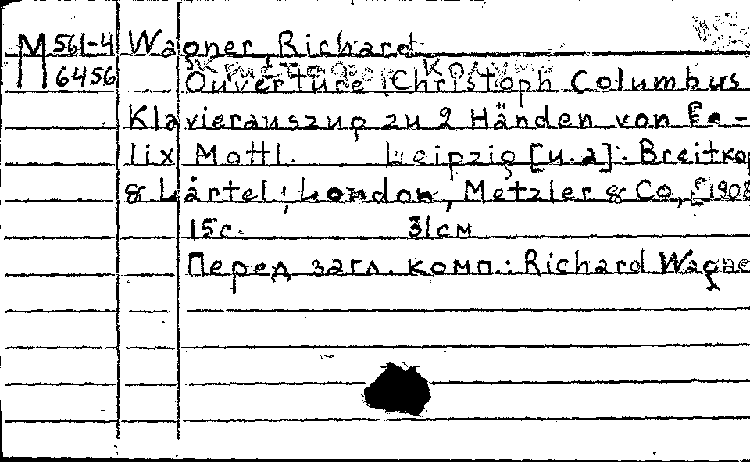 М 561-4 Wagner, Richard
6456 Ouverture Christoph Columbus
Klavierauszug zu 2 Händen von Fe-
lix Mottl. Leipzig [u.a]. Breitkop
& Härtel; London, Metzler & Co, [1908
15с. 31см
Перед загл. комп.: Richard Wagne